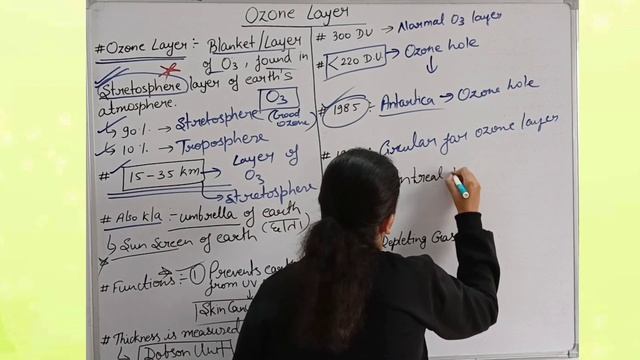 Ozone Layer
# Ozone Layer :- Blanket/Layer
of O3, found in
Stretosphere layer of earth's
atmosphere.
O3
(Good Ozone)
90% - Stretosphere
10% - Troposphere
# 15-35 km → Layer of
O3
→ stretosphere
# Also k/a :- umbrella of earth
(छाता)
Sun Screen of earth
# Functions :- ① Prevents
from UV
Skin
# Thickness is measured
Dobson Unit
# 300 D.U → Normal O3 layer
# < 220 D.U. → Ozone hole
# 1985 :- Antartica → Ozone hole
Circular for ozone layer
Depleting